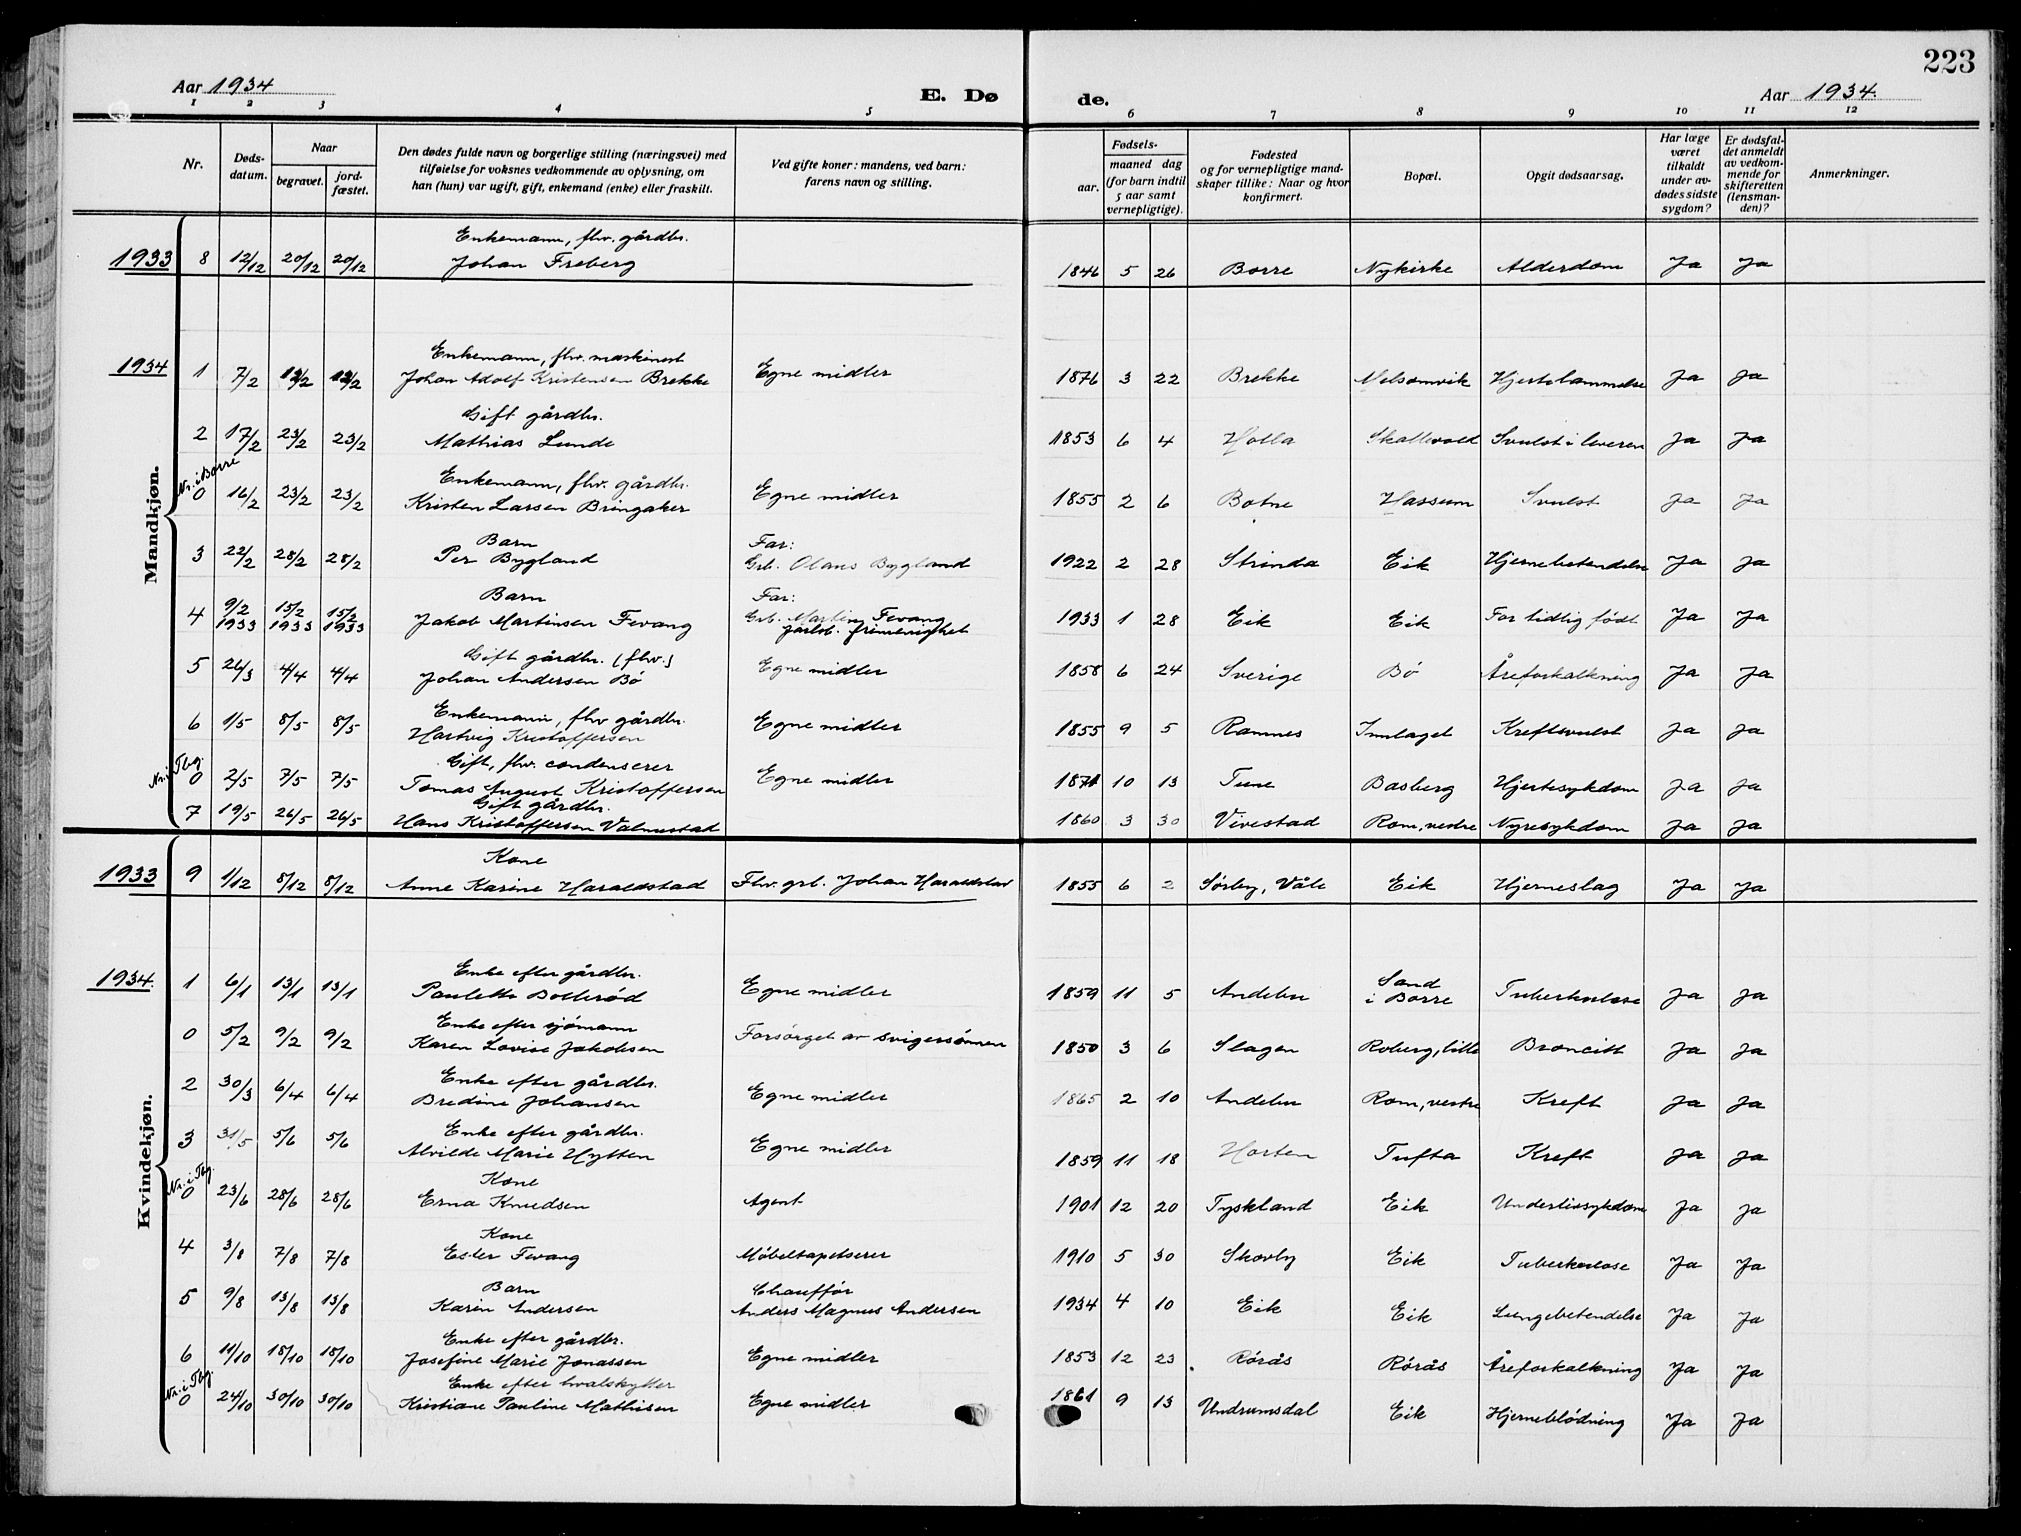 223
Aar 1934
E. Dø
de.
Aar 1934.
1 2 3 4 5 6 7 8 9 10 11 12
Nr.
Døds-
datum.
Naar
begravet.
jord-
fæstet.
Den dødes fulde navn og borgerlige stilling (næringsvei) med
tilføielse for voksnes vedkommende av oplysning, om
han (hun) var ugift, gift, enkemand (enke) eller fraskilt.
Ved gifte koner: mandens, ved barn:
farens navn og stilling.
Fødsels-
aar.
maaned dag
(for barn indtil
5 aar samt
vernepligtige).
Fødested
og for vernepligtige mand-
skaper tillike: Naar og hvor
konfirmert.
Bopæl.
Opgit dødsaarsag.
Har læge
været
tilkaldt
under av-
dødes sidste
sygdom?
Er dødsfal-
det anmeldt
av vedkom-
mende for
skifteretten
(lensman-
den)?
Anmerkninger.
Mandkjøn.
Enkemann, fhv. gårdbr.
1933 8 12/12 20/12 20/12 Johan Freberg 1846 5 26 Borre Nykirke Alderdom Ja Ja
Enkemann, fhv. maskinist
1934 1 7/2 13/2 13/2 Johan Adolf Kristensen Brekke Egne midler 1876 3 22 Brekke Melsomvik Hjertelammelse Ja Ja
Gift gårdbr.
2 17/2 23/2 23/2 Mathias Lunde 1853 6 4 Holla Skallevold Svulst i leveren Ja Ja
Nr. i Borre Enkemann, fhv. gårdbr.
0 16/2 23/2 23/2 Kristen Larsen Bringaker Egne midler 1855 2 6 Botne Hassum Svulst Ja Ja
Barn Far:
3 22/2 28/2 28/2 Per Bygland Grb. Olaus Bygland 1922 2 28 Strinda Eik Hjernebetendelse Ja Ja
Barn Far:
4 9/2 1933 15/2 1933 15/2 1933 Jakob Martinsen Fevang Grb. Martin Fevang 1933 1 28 Eik Eik For tidlig født Ja Ja
Jarlsb. frimenighet
Gift gårdbr. (fhv.)
5 26/3 4/4 4/4 Johan Andersen Bö Egne midler 1858 6 24 Sverige Bö Åreforkalkning Ja Ja
Enkemann, fhv gårdbr.
6 1/5 8/5 8/5 Hartvig Kristoffersen Egne midler 1855 9 5 Ramnes Innlaget Kreftsvulst Ja Ja
Nr. i Tbg. Gift, fhv. condenserer
0 2/5 7/5 7/5 Tomas August Kristoffersen Egne midler 1871 10 13 Tune Basberg Hjertesykdom Ja Ja
Gift gårdbr.
7 19/5 26/5 26/5 Hans Kristoffersen Valmestad 1860 3 30 Vivestad Rom, vestre Nyresykdom Ja Ja
Kvindekjøn.
Kone
1933 9 1/12 8/12 8/12 Anne Karine Haraldstad Fhv. grb. Johan Haraldstad 1855 6 2 Sørby, Våle Eik Hjerneslag Ja Ja
Enke efter gårdbr.
1934. 1 6/1 13/1 13/1 Paulette Bollerød Egne midler 1859 11 5 Andebu Sand i Borre Tuberkulose Ja Ja
Enke efter sjömann
0 5/2 9/2 9/2 Karen Lovise Jakobsen Forsörget av svigersönnen 1850 3 6 Slagen Roberg, lille Broncitt Ja Ja
Enke efter gårdbr.
2 30/3 6/4 6/4 Bredine Johansen Egne midler 1865 2 10 Andebu Rom, vestre Kreft Ja Ja
Enke efter gårdbr.
3 31/5 5/6 5/6 Alvilde Marie Hytten Egne midler 1859 11 18 Horten Tufta Kreft Ja Ja
Nr. i Tbg. Kone
0 23/6 28/6 28/6 Erna Knudsen Agent 1901 12 20 Tyskland Eik Underlivssykdom Ja Ja
Kone
4 3/8 7/8 7/8 Ester Fevang Møbeltapetserer 1910 5 30 Skovby Eik Tuberkulose Ja Ja
Barn Chauffør
5 9/8 13/8 13/8 Karin Andersen Anders Magnus Andersen 1934 4 10 Eik Eik Lungebetendelse Ja Ja
Enke efter gårdbr.
6 11/10 18/10 18/10 Josefine Marie Jonassen Egne midler 1853 12 23 Rörås Rörås Åreforkalkning Ja Ja
Nr. i Tbg. Enke efter hvalskytter
0 24/10 30/10 30/10 Kristiane Pauline Mathisen Egne midler 1861 9 13 Undrumsdal Eik Hjerneblödning Ja Ja